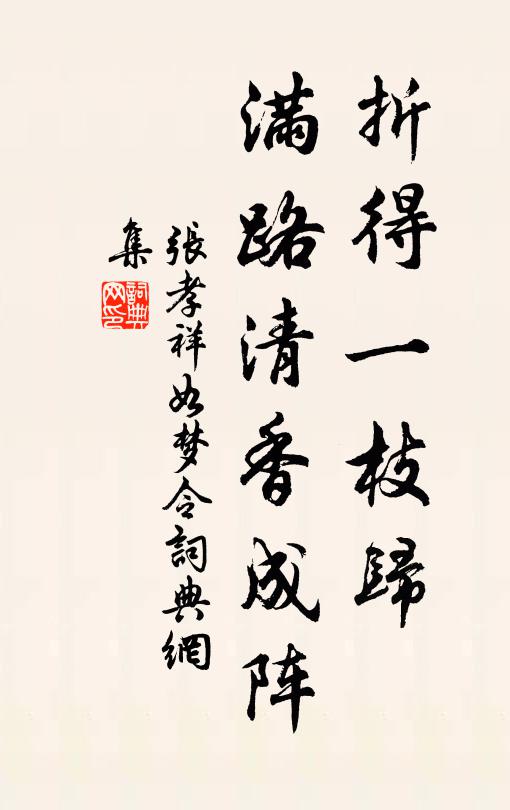 折得一枝歸
满路清香成阵
張孝祥如梦令詞典網
集
詞典网印